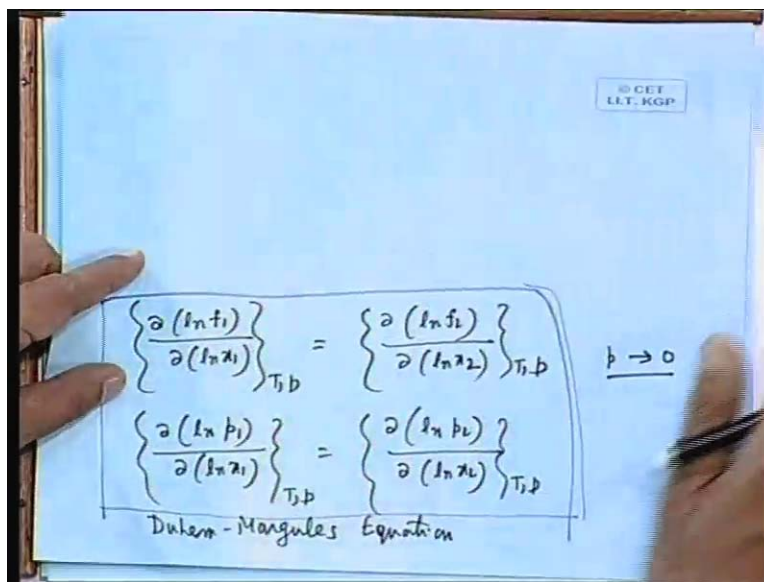 © CET
I.I.T. KGP
{∂(ln f₁)/∂(ln x₁)}T,p = {∂(ln f₂)/∂(ln x₂)}T,p p → 0
{∂(ln p₁)/∂(ln x₁)}T,p = {∂(ln p₂)/∂(ln x₂)}T,p
Duhem-Margules Equation